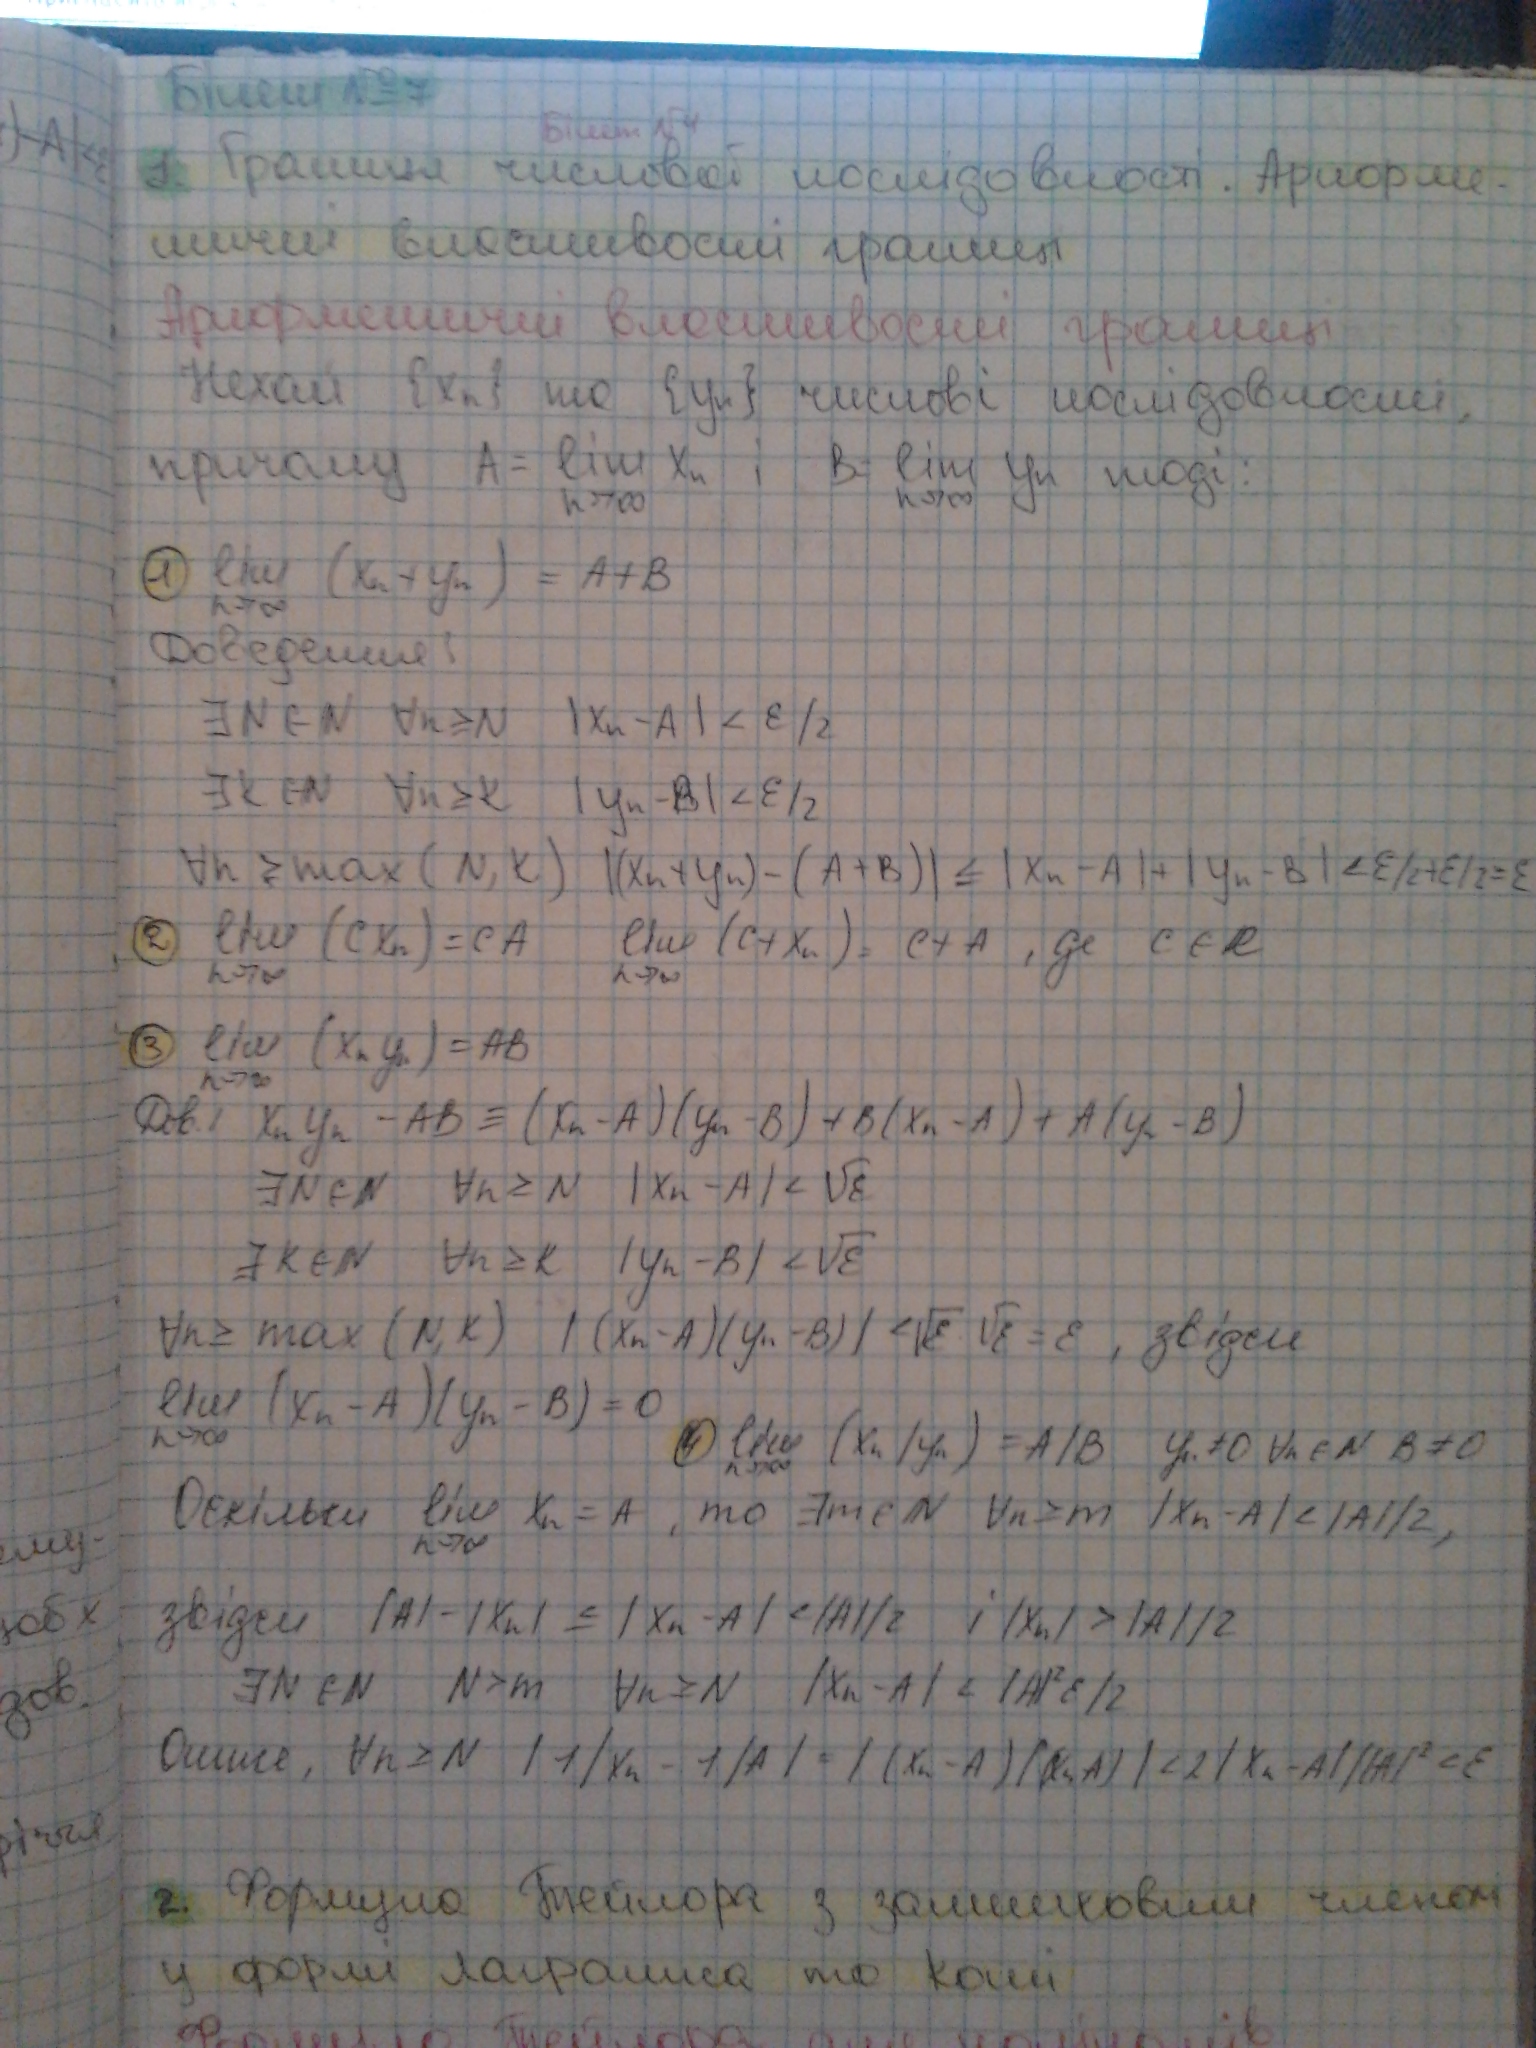 Білет №7
Білет №4
1. Границя числової послідовності. Арифме-
тичні властивості границі
Арифметичні властивості границі
Нехай {xₙ} та {yₙ} числові послідовності,
причому A = lim xₙ і B = lim yₙ тоді:
n→∞ n→∞
① lim (xₙ + yₙ) = A+B
n→∞
Доведення:
∃N∈N ∀n≥N |xₙ-A| < ε/2
∃K∈N ∀n≥K |yₙ-B| < ε/2
∀n ≥ max(N,K) |(xₙ+yₙ)-(A+B)| ≤ |xₙ-A|+|yₙ-B| < ε/2+ε/2=ε
② lim (cxₙ) = cA lim (c+xₙ) = c+A, де c∈R
n→∞ n→∞
③ lim (xₙyₙ) = AB
n→∞
Дов.: xₙyₙ - AB ≡ (xₙ-A)(yₙ-B)+B(xₙ-A)+A(yₙ-B)
∃N∈N ∀n≥N |xₙ-A| < √ε
∃K∈N ∀n≥K |yₙ-B| < √ε
∀n≥ max(N,K) |(xₙ-A)(yₙ-B)| < √ε √ε = ε, звідси
lim (xₙ-A)(yₙ-B) = 0
n→∞
④ lim (xₙ/yₙ) = A/B yₙ≠0 ∀n∈N B≠0
n→∞
Оскільки lim xₙ = A, то ∃m∈N ∀n≥m |xₙ-A|<|A|/2,
n→∞
звідси |A|-|xₙ| ≤ |xₙ-A| < |A|/2 і |xₙ| > |A|/2
∃N∈N N>m ∀n≥N |xₙ-A| < |A|²ε/2
Отже, ∀n≥N |1/xₙ - 1/A| = |(xₙ-A)/(xₙA)| < 2|xₙ-A|/|A|² < ε
2. Формула Тейлора з залишковим членом
у формі Лагранжа та Коші
Формула Тейлора для поліномів